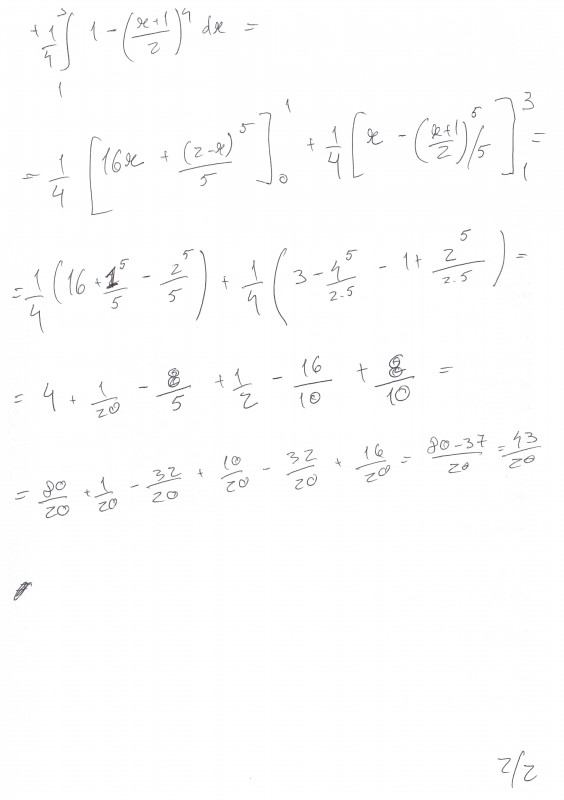 + 1/4 ∫₁³ 1 - ((x+1)/2)⁴ dx =
= 1/4 [16x + (2-x)⁵/5]₀¹ + 1/4 [x - ((x+1)/2)⁵/5]₁³ =
= 1/4 (16 + 1⁵/5 - 2⁵/5) + 1/4 (3 - 4⁵/(2·5) - 1 + 2⁵/(2·5)) =
= 4 + 1/20 - 8/5 + 1/2 - 16/10 + 8/10 =
= 80/20 + 1/20 - 32/20 + 10/20 - 32/20 + 16/20 = (80-37)/20 = 43/20
2/2